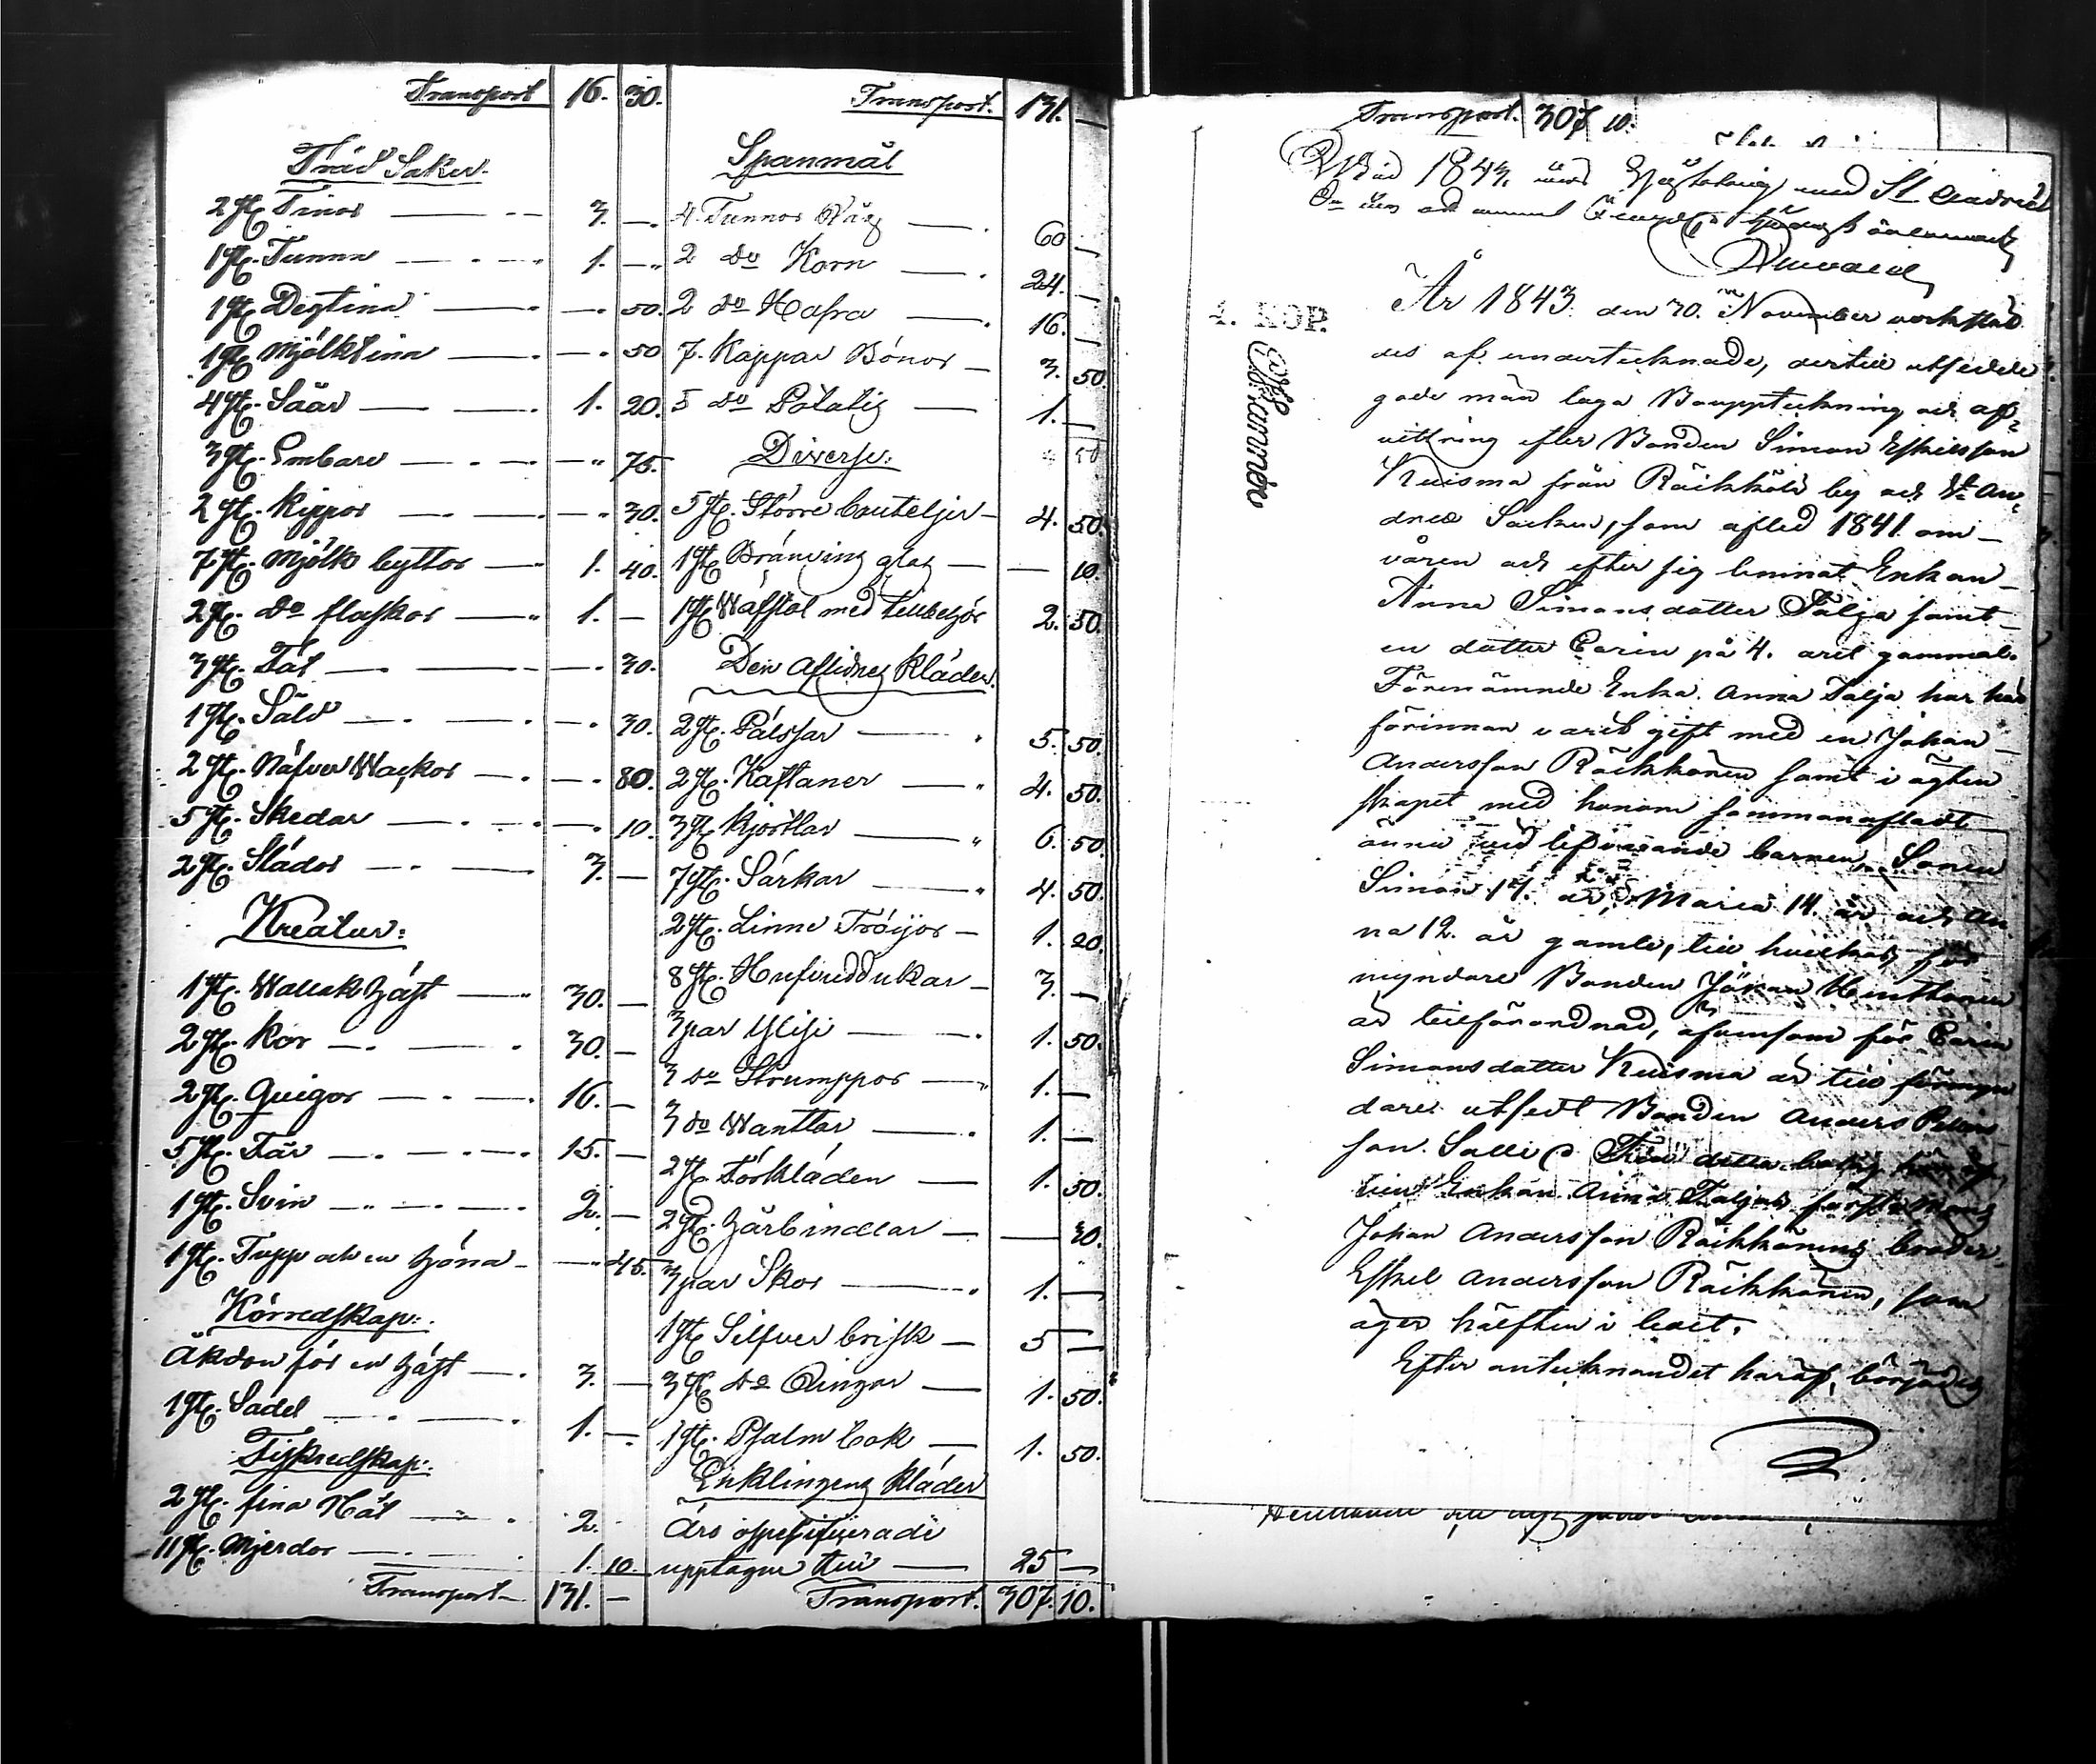 Transport 16. 30.
Träd Saker.
2 st. Tinor 3. —
1 st. Tunna 1. —
1 st. Degtina — 50.
1 st. Mjölktina — 50
4 st. Såar 1. 20.
3 st. Embare — 75.
2 st. Kippor — 30.
7 st. Mjölk byttor 1. 40.
2 st. do flaskor 1. —
3 st. Fat — 30.
1 st. Såld — 30.
2 st. Näfver Wackor — 80.
5 st. Skedar — 10.
2 st. Slädor 3. —
Kreatur:
1 st. Wallak häst 30. —
2 st. Kor 30. —
2 st. Quigor 16. —
5 st. Får 15. —
1 st. Svin 2. —
1 st. Tupp och en höna — 45.
Körredskap:
Åkdon för en häst 3. —
1 st. Sadel 1. —
Fiskredskap:
2 st. fina Nät 2.
11 st. Mjerdor 1. 10.
Transport 131. —
Transport. 131. —
Spanmål
4. Tunnor Råg 60 —
2 do Korn 24. —
2 do Hafra 16. —
7. Kappar Bönor 3. 50.
5 do Potatis 1. —
Diverse:
5 st. Större bouteljer 4. 50.
1 st. Bränvins glas — 10.
1 st. Wäfstol med tillbehör 2. 50.
Den aflidnes Kläder.
2 st. Pälsar 5. 50.
2 st. Kaftaner 4. 50.
3 st. Kjortlar 6. 50.
7 st. Särkar 4. 50.
2 st. Linne Tröijor 1. 20.
8 st. Hufvuddukar 3. —
3 par 1. 50.
3 do Strumppor 1. —
3 do Wanttar 1. —
2 st. Förkläden 1. 50.
2 st. Hårbindlar — 30.
3 par Skor 1. —
1 st. Silfver brisk 5 —
3 st. do Ringar 1. 50.
1 st. Psalm bok 1. 50.
Enklingens Kläder
äro
upptagne till 25 —
Transport. 307. 10.
Transport. 307 10.
1843. med St Andreæ
4. KOP.
År 1843. den 30. November verkstäd
des af undertecknade, dertill utsedde
gode män laga Bouppteckning och af=
vittring efter Bonden Simon Eskelsson
Kuisma från Räikkölä by och St An=
dreæ Socken, som afled 1841. om
våren och efter sig lemnat Enkan
Anna Simonsdotter Talja samt
en dotter Carin på 4. året gammal.
Förenämnde Enka Anna Talja har här
förinnan varit gift med en Johan
Andersson Räikkönen samt i ägten
skapet med honom sammanaflat
ännu vid lif varande barnen, Sonen
Simon 17. år, Maria 14. år och An
na 12. år gamle, till hvilkas för
myndare Bonden Johan
är tillförordnad, äfvensom för Carin
Simonsdotter Kuisma är till förmyn
dare utsedt Bonden Anders
son. Salli
Enkan Anna Taljas första Mans
Johan Andersson Räikkönens broder
Eskel Andersson Räikkönen, som
äger hälften i boet.
Efter antecknandet häraf, börjades